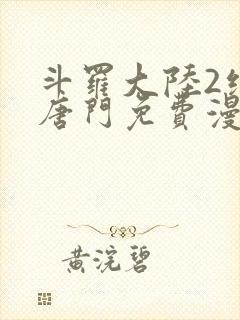 斗羅大陸2
唐門免費漫
黃浣碧